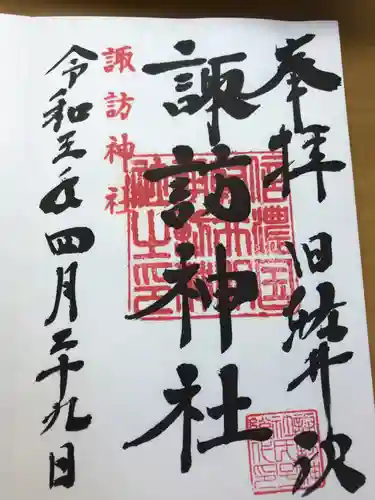 奉拝 旧軽井沢
諏訪神社
諏訪神社
令和五年四月二十九日